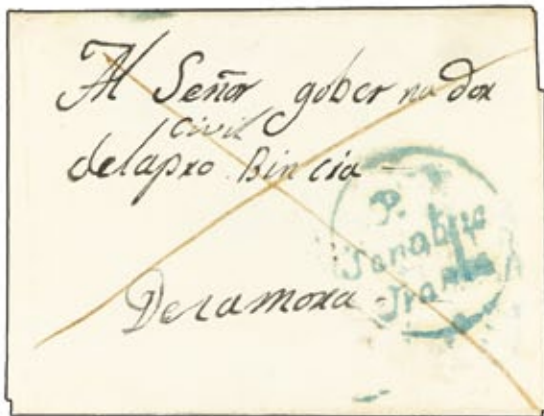 Al Señor gober na dor
civil
delapro Bin cia
De camora
P.
Sanabria
Franca